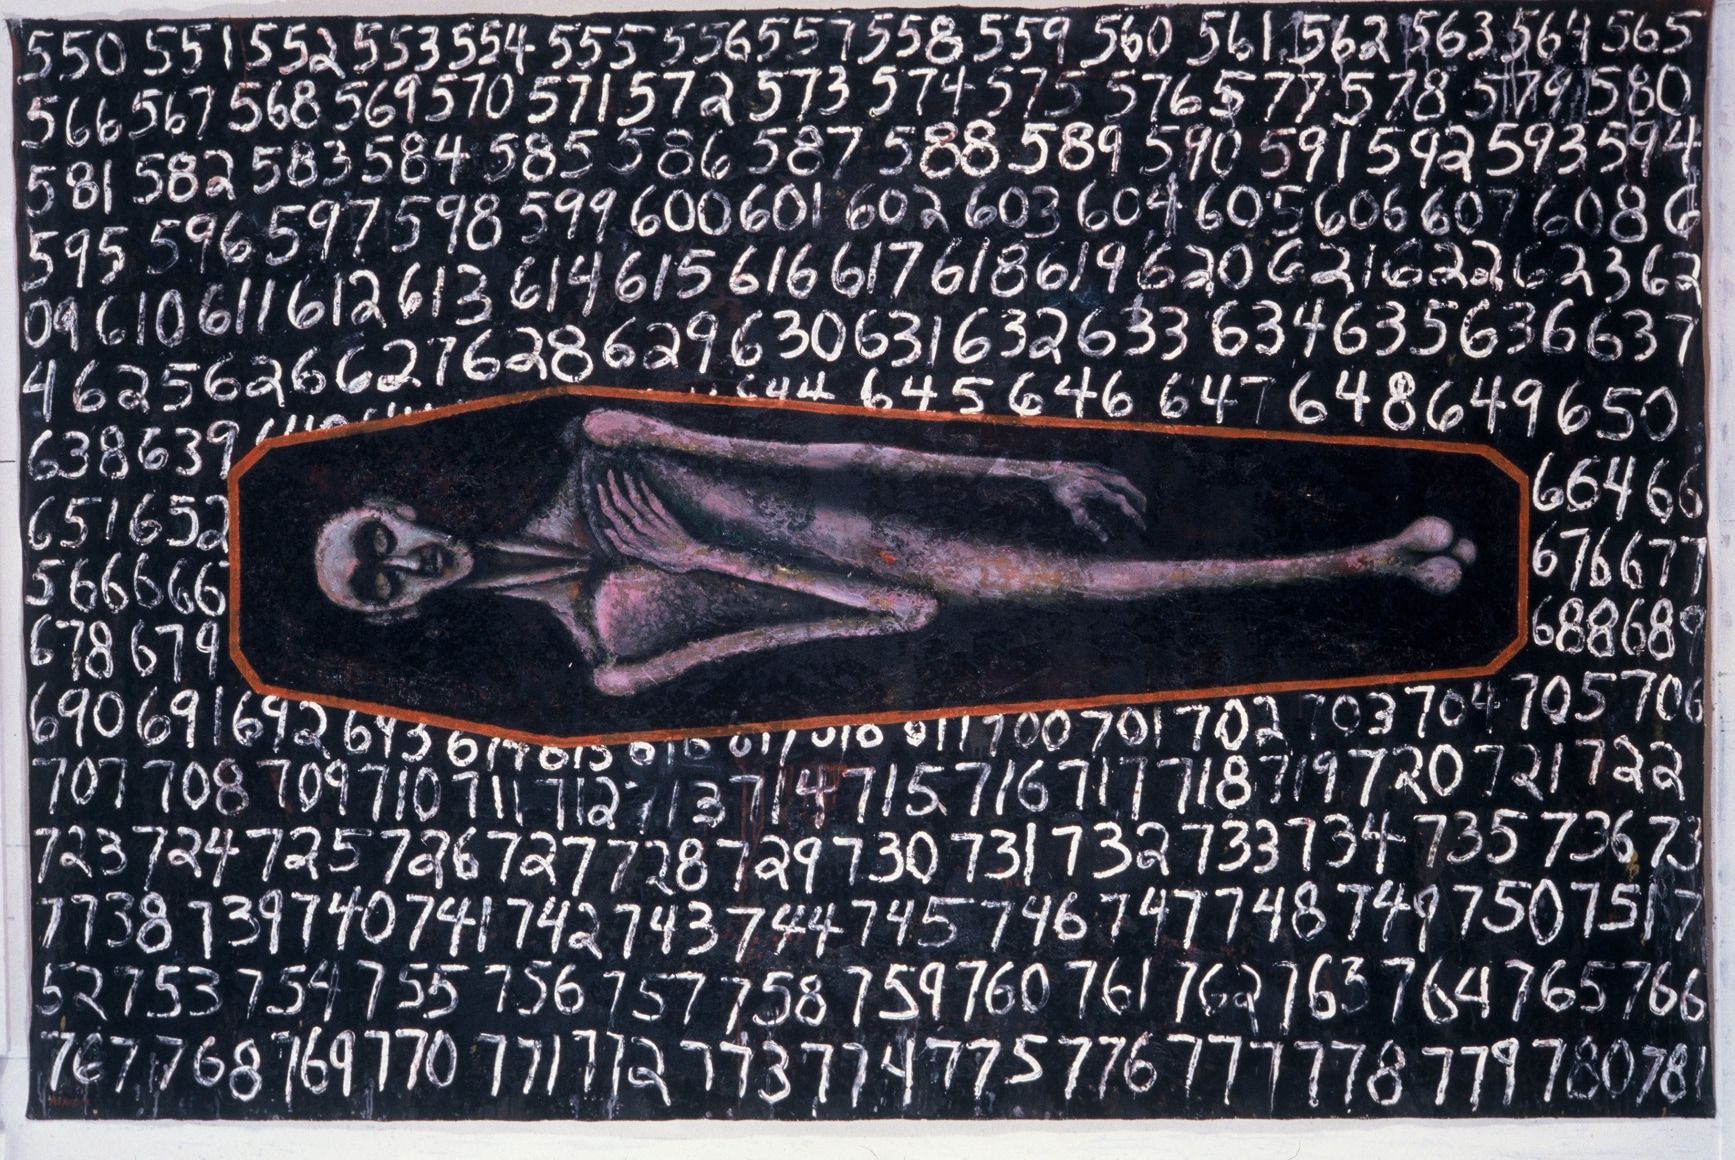 550 551 552 553 554 555 556 557 558 559 560 561 562 563 564 565
566 567 568 569 570 571 572 573 574 575 576 577 578 579 580
581 582 583 584 585 586 587 588 589 590 591 592 593 594
595 596 597 598 599 600 601 602 603 604 605 606 607 608 6
09 610 611 612 613 614 615 616 617 618 619 620 621 622 623 62
4 625 626 627 628 629 630 631 632 633 634 635 636 637
638 639 644 645 646 647 648 649 650
651 652 664 66
5 666 667 676 677
678 679 688 689
690 691 692 693 700 701 702 703 704 705 706
707 708 709 710 711 712 713 714 715 716 717 718 719 720 721 722
723 724 725 726 727 728 729 730 731 732 733 734 735 736 73
7 738 739 740 741 742 743 744 745 746 747 748 749 750 751 7
52 753 754 755 756 757 758 759 760 761 762 763 764 765 766
767 768 769 770 771 772 773 774 775 776 777 778 779 780 781